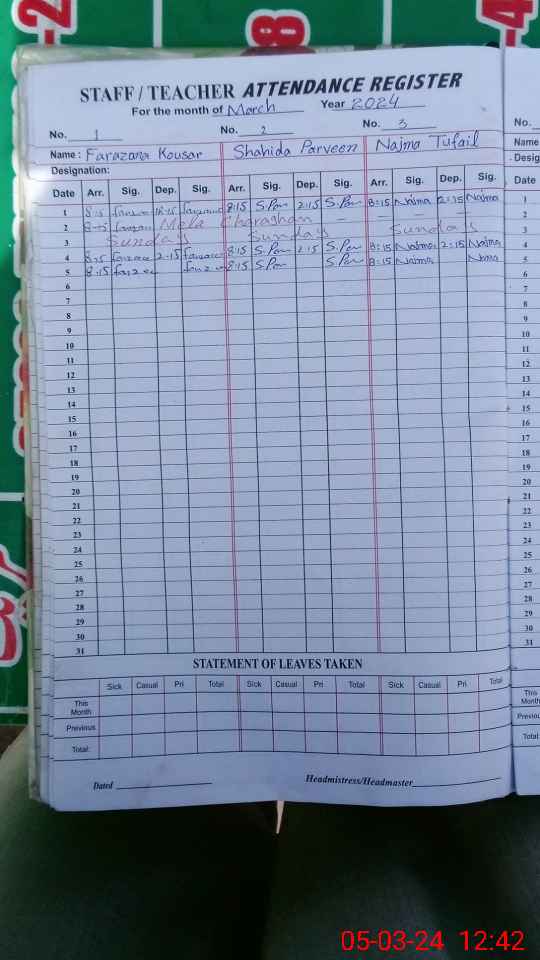 STAFF / TEACHER ATTENDANCE REGISTER
For the month of March Year 2024
No. 1 No. 2 No. 3
Name : Farazana Kousar Shahida Parveen Najma Tufail
Designation:
Date Arr. Sig. Dep. Sig. Arr. Sig. Dep. Sig. Arr. Sig. Dep. Sig.
1 8:15 8:15 S.Par 2:15 S.Par 8:15 Najma 2:15 Najma
2 8:15 Mela Charaghan – – – –
3 Sunday Sunday Sunday
4 8:15 2:15 8:15 S.Par 2:15 S.Par 8:15 Najma 2:15 Najma
5 8:15 8:15 S.Par S.Par 8:15 Najma Najma
6
7
8
9
10
11
12
13
14
15
16
17
18
19
20
21
22
23
24
25
26
27
28
29
30
31
STATEMENT OF LEAVES TAKEN
Sick Casual Pri Total Sick Casual Pri Total Sick Casual Pri Total
This Month
Previous
Total:
Dated Headmistress/Headmaster
No.
Name
Desig
Date
1
2
3
4
5
6
7
8
9
10
11
12
13
14
15
16
17
18
19
20
21
22
23
24
25
26
27
28
29
30
31
This
Month
Previou
Total
05-03-24 12:42